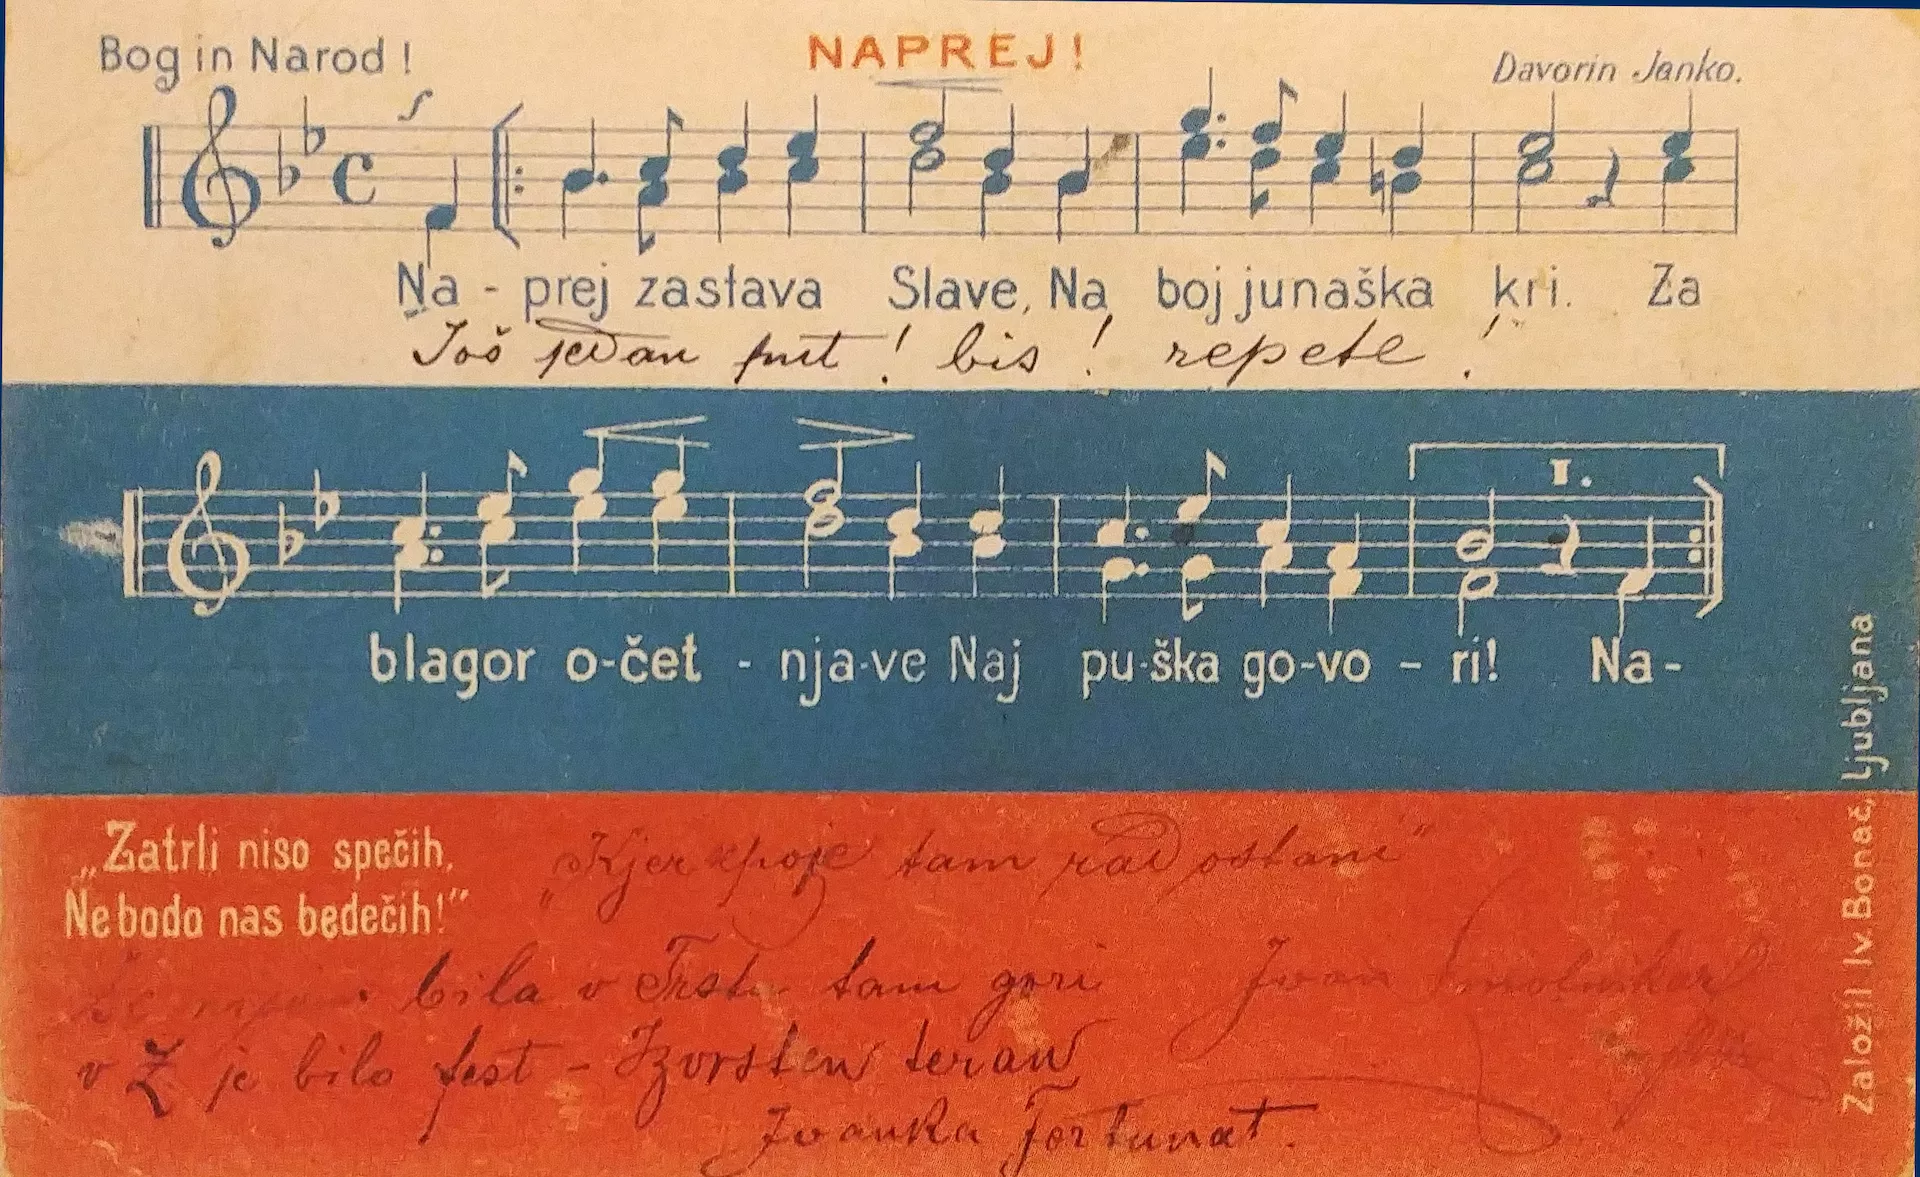 Bog in Narod !
NAPREJ!
Davorin Janko.
Na - prej zastava Slave, Na boj junaška kri. Za
Još jedan put ! bis ! repete !
I.
blagor o-čet - nja-ve Naj pu-ška go-vo - ri! Na-
„Zatrli niso spečih,
Ne bodo nas bedečih!“
„Kjer spoje tam rad ostani“
bila v Trstu tam gori
Ivan
v Ž je bilo fest - Izvrsten teran
Ivanka Fortunat.
Založil Iv. Bonač, Ljubljana